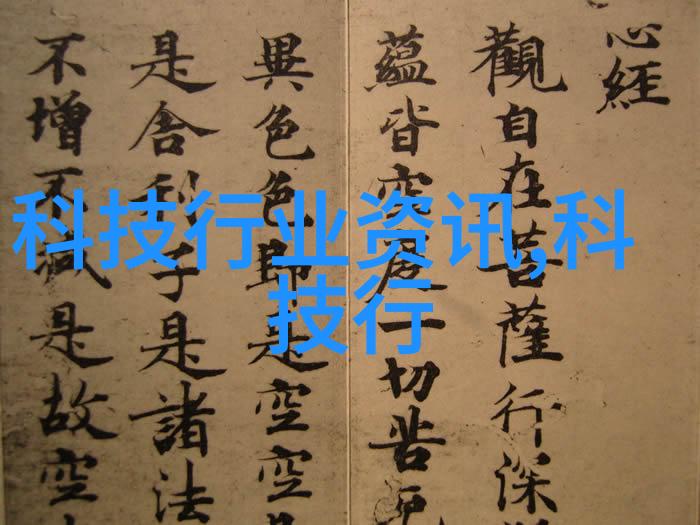 心經
觀自在菩薩行深
蘊皆空度一切苦厄
異色色是空空
是舍利子是諸法
不增不減是故空
科技行业资讯,科
技行